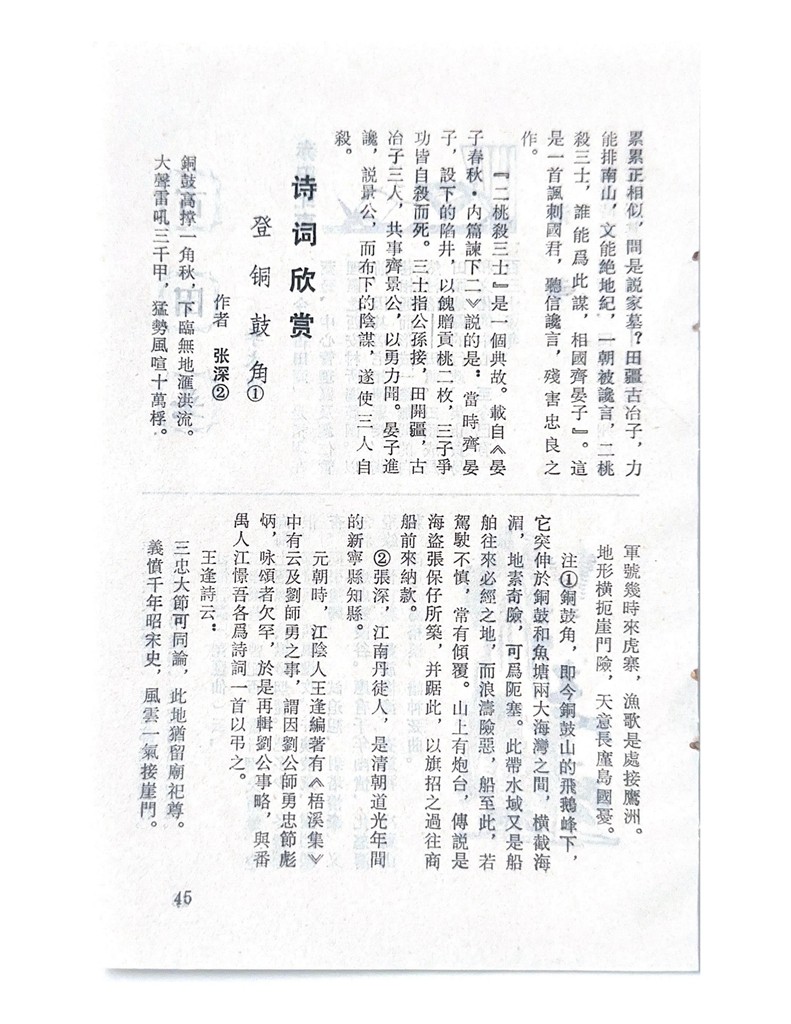 累累正相似，問是説家墓？田疆古冶子，力
能排南山，文能絶地紀，一朝被讒言，二桃
殺三士，誰能爲此謀，相國齊晏子』。這
是一首諷刺國君，聽信讒言，殘害忠良之
作。
『二桃殺三士』是一個典故。載自《晏
子春秋·内篇諫下二》説的是：當時齊晏
子，設下的陷井，以餽贈貢桃二枚，三子爭
功皆自殺而死。三士指公孫接，田開疆，古
冶子三人，共事齊景公，以勇力聞。晏子進
讒，説景公，而布下的陰謀，遂使三人自
殺。
诗词欣赏
登铜鼓角①
作者 张深②
銅鼓高撑一角秋，下臨無地滙洪流。
大聲雷吼三千甲，猛勢風喧十萬桴。
軍號幾時來虎寨，漁歌是處接鷹洲。
地形横扼崖門險，天意長廑島國憂。
注①銅鼓角，即今銅鼓山的飛鵝峰下，
它突伸於銅鼓和魚塘兩大海灣之間，横截海
湄，地素奇險，可爲阨塞。此帶水域又是船
舶往來必經之地，而浪濤險惡，船至此，若
駕駛不慎，常有傾覆。山上有炮台，傳説是
海盜張保仔所築，并踞此，以旗招之過往商
船前來納款。
②張深，江南丹徒人，是清朝道光年間
的新寧縣知縣。
元朝時，江陰人王逢編著有《梧溪集》
中有云及劉師勇之事，謂因劉公師勇忠節彪
炳，咏頌者欠罕，於是再輯劉公事略，與番
禺人江憬吾各爲詩詞一首以弔之。
王逢詩云：
三忠大節可同論，此地猶留廟祀尊。
義憤千年昭宋史，風雲一氣接崖門。
45